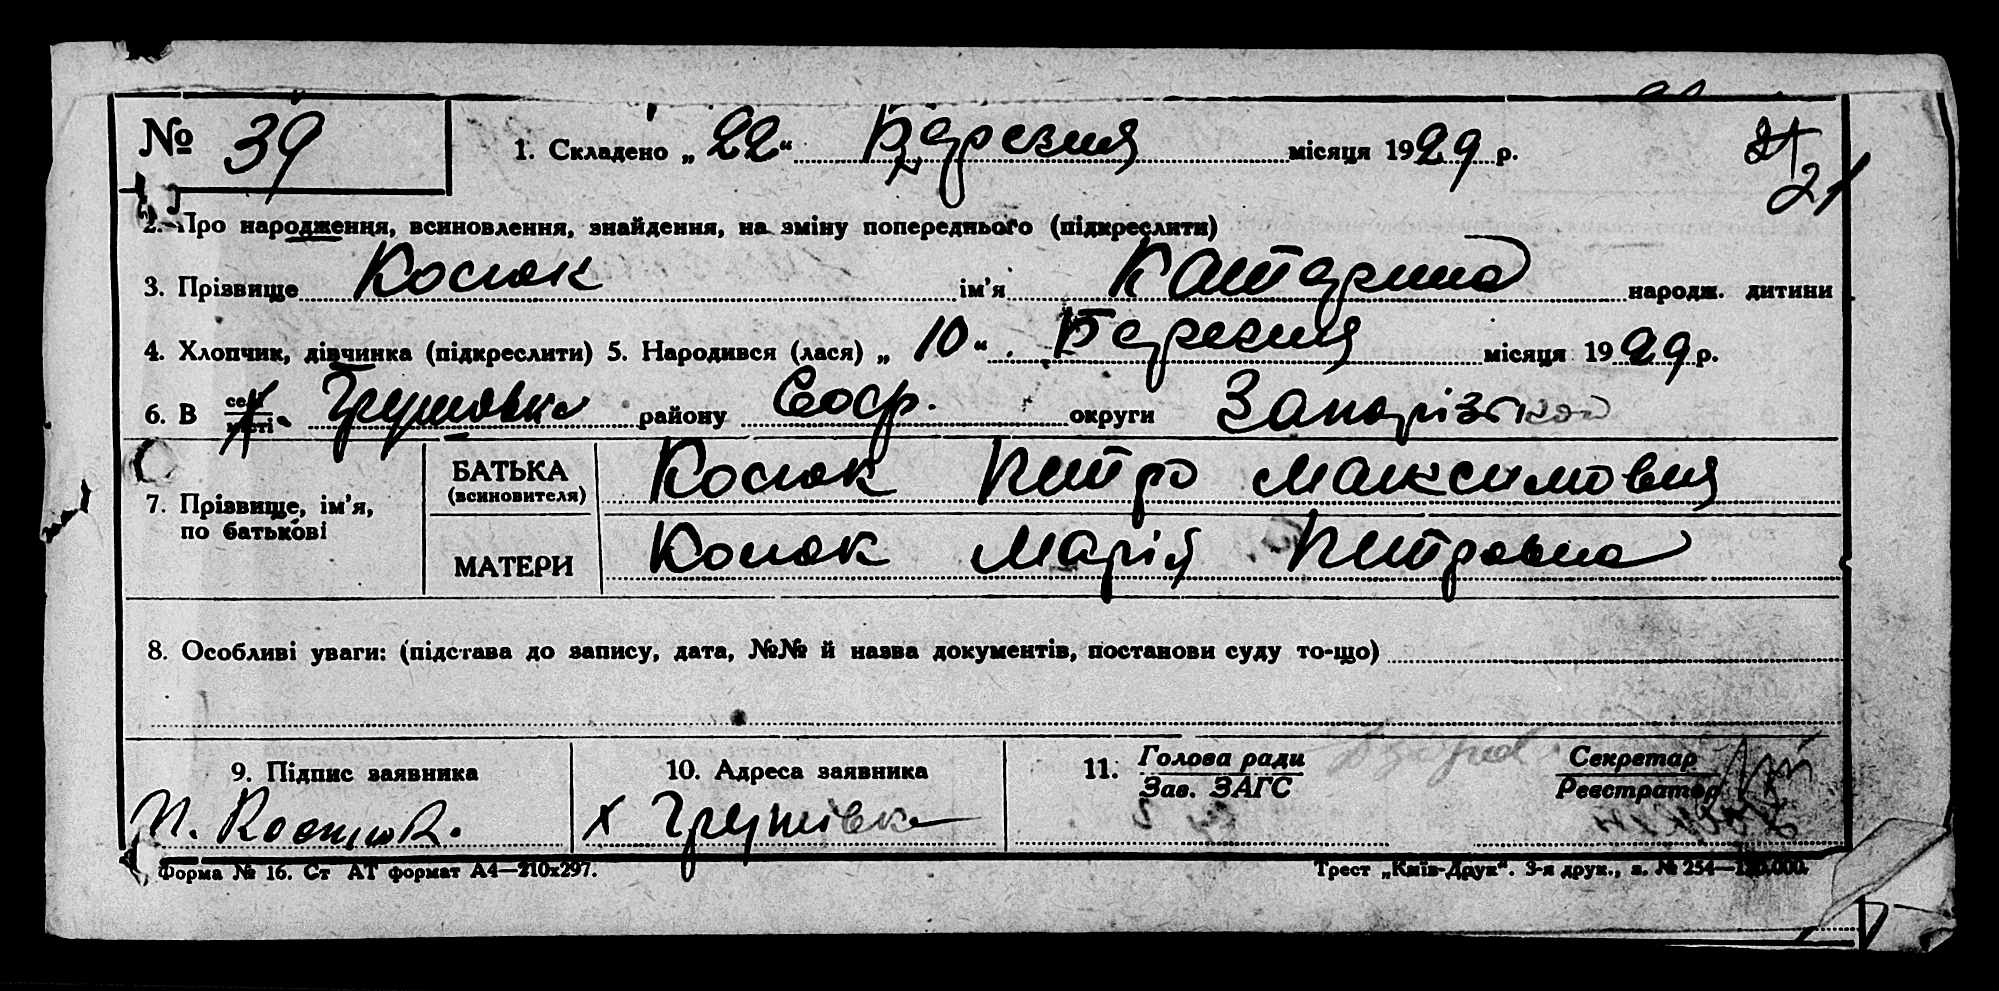 № 39 1. Складено „ 22 “ Березня місяця 1929 р.
21
2. Про народження, всиновлення, знайдення, на зміну попереднього (підкреслити)
3. Прізвище Косюк ім’я Катерина народж. дитини
4. Хлопчик, дівчинка (підкреслити) 5. Народився (лася) „ 10 “ Березня місяця 1929 р.
6. В селі місті Грушовка району Софр. округи Запорізької
7. Прізвище, ім’я, по батькові
БАТЬКА (всиновителя) Косюк Петро Максимович
МАТЕРИ Косюк Марія Петровна
8. Особливі уваги: (підстава до запису, дата, №№ й назва документів, постанови суду то-що)
9. Підпис заявника
П. Косюк.
10. Адреса заявника
х Грушівка
11. Голова ради
Зав. ЗАГС
Секретар
Реєстратор
Форма № 16. Ст АТ формат А4—210х297.
Трест „Київ-Друк“. 3-я друк., з. № 254—